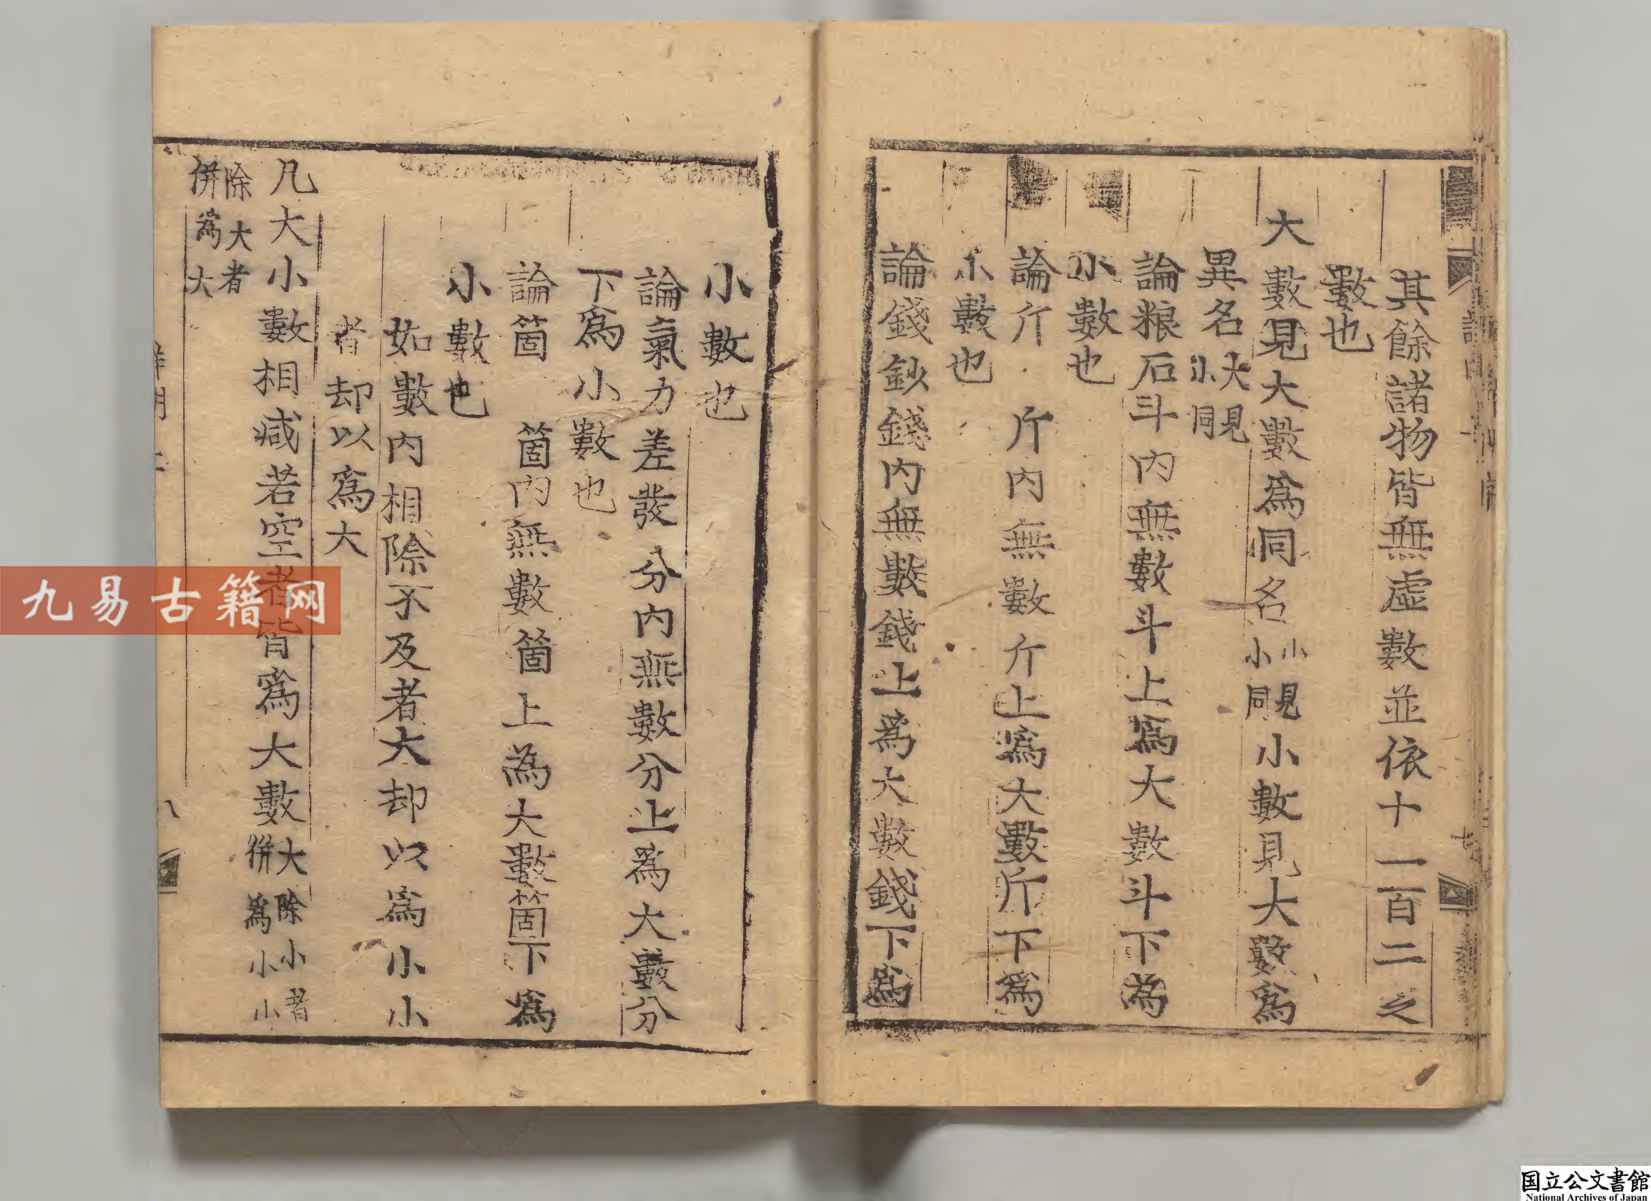 其餘諸物皆無虛數並依十一百二之
數也
大數見大數為同名小見小同小數見大數爲
異名大見小同
論粮石斗內無數斗上爲大數斗下為
小數也
論斤 斤內無數斤上爲大數斤下爲
小數也
論錢鈔錢內無數錢上爲大數錢下爲
小數也
論氣力差發分內無數分上爲大數分
下爲小數也
論箇 箇內無數箇上為大數箇下爲
小數也
如數內相除不及者大却以爲小小
者却以爲大
凡大小數相减若空者皆爲大數大除小者併爲小小
除大者併爲大
八
九易古籍网
国立公文書館
National Archives of Japan